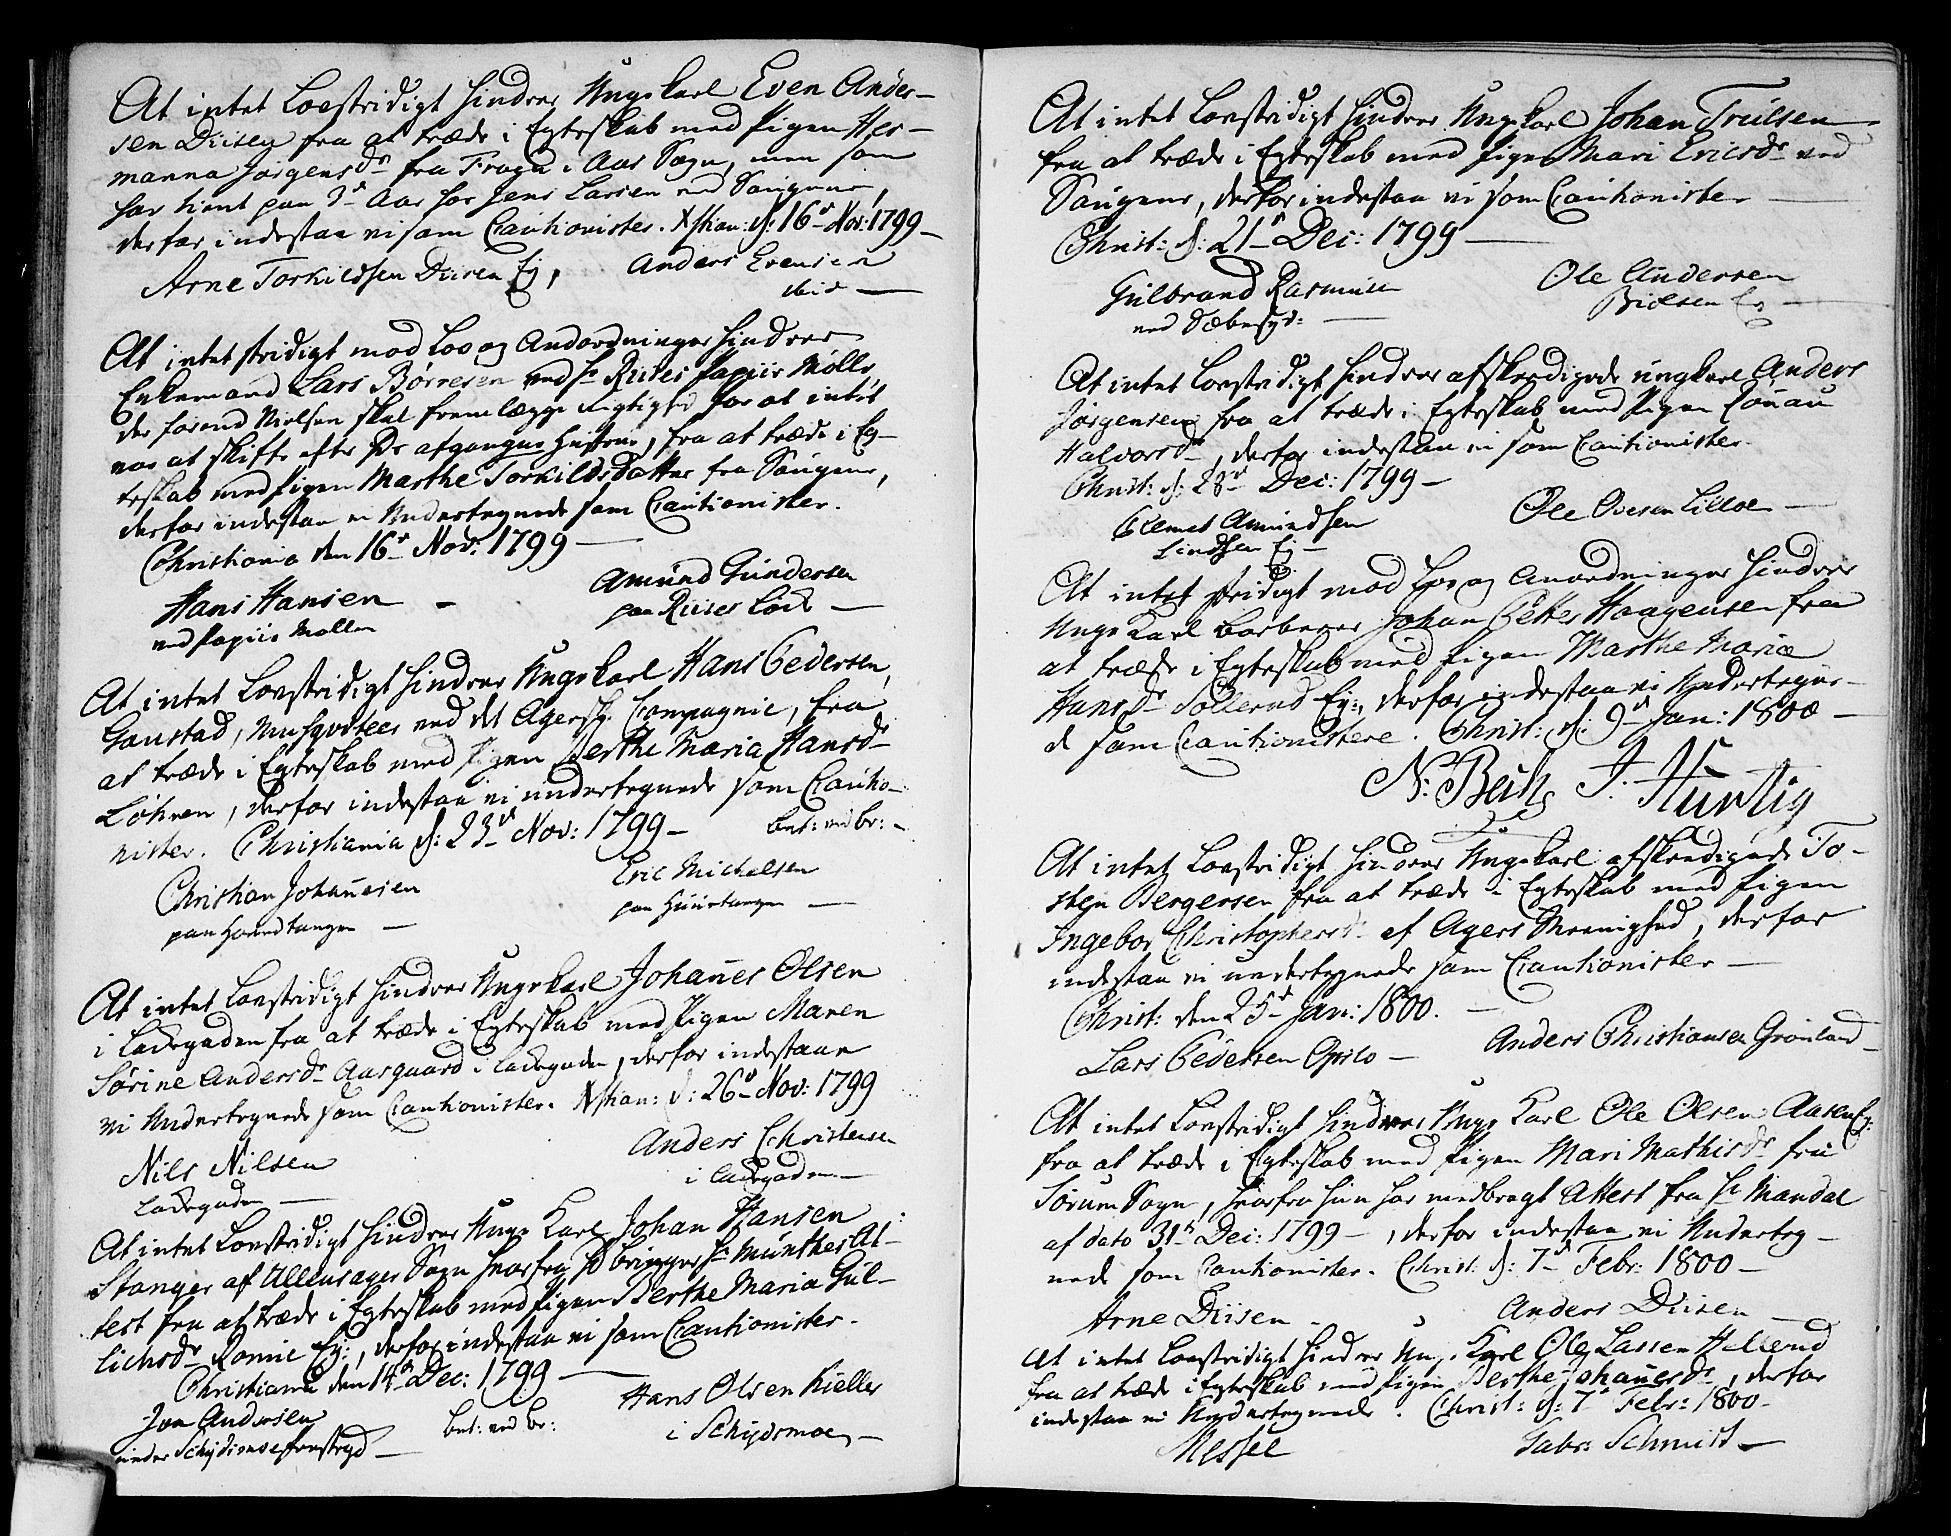 At intet Lovstridigt hindrer Ungekarl Even Ander-
sen Diisen fra at træde i Egteskab med Pigen Her-
manna Jørgensdr fra Frogn i Aas Sogn, men som
har tient paa 3de Aar hos Jens Larsen ved Saugene,
derfor indestaa vi som Cautionister. Xstian: d: 16de Nov: 1799 –
Arne Torkildsen Diisen Ej, Anders Evensen
ibid –
At intet stridigt mod Lov og Andordninger hindrer
Enkemand Lars Børresen ved Hr Riises Papiir Mølle,
der forend Vielsen skal fremlægge Rigtighed for at intet
var at skifte efter Ds afgangne Hustrue, fra at træde i Eg-
teskab med Pigen Marthe Torkilds Datter fra Saugene,
derfor indestaa vi Undertegnede som Cautionister.
Christiania den 16de Nov: 1799 –
Hans Hansen – Amund Gundersen
ved Papiir Møllen paa Riises Løck –
At intet Lovstridigt hindrer Ungekarl Hans Pedersen,
Gaustad, Musqveteer ved det Agersh: Compagnie, fra
at træde i Egteskab med Pigen Berthe Maria Hansdr
Løkren, derfor indestaa vi undertegnede som Cautio-
nister. Christiania d: 23de Nov: 1799 – bet: ved br: –
Christian Johanesen Eric Michelsen
paa Hovedtangen – paa Huustangen –
At intet Lovstridigt hindrer Ungekarl Johanes Olsen
i Ladegaden fra at træde i Egteskab med Pigen Maren
Sørine Andersdr Aasgaard i Ladegaden, derfor indestaae
vi Undertegnede som Cautionister. Xstian: d: 26de Nov: 1799
Nils Nilsen Anders Christensen
Ladegaden – i Ladegaden –
At intet Lovstridigt hindrer Unge Karl Johan Hansen
Stanger af Ullensager Sogn hvorfra D bringer Hr Münthes At-
test fra at træde i Egteskab med Pigen Berthe Maria Gul-
lichsdr Romie Ej:, derfor indestaa vi som Cautionister.
Christiania den 14de Dec: 1799 –
Jon Andersen bet: ved br: Hans Olsen Kieller
under Schydsmoe forstryd – i Schydsmoe –
At intet Lovstridigt hindrer Ungekarl Johan Trulsen
fra at træde i Egteskab med Pigen Mari Ericsdr ved
Saugene, derfor indestaa vi som Cautionister –
Christ: d: 21de Dec: 1799 –
Gulbrand Rasmusen Ole Andersen
ved Sæbesyd: – Biølsen Ej –
At intet Lovstridigt hindrer afskedigede ungkarl Anders
Jørgensen fra at træde i Egteskab med Pigen
Halvorsdr, derfor indestaa vi som Cautionister.
Christ: d: 28de Dec: 1799 –
Clemet Amundsen Ole Ovesen Lilloe –
Lindsen Ej –
At intet stridigt mod Lov og Anordninger hindrer
Unge Karl Barberer Johan Petter Haagensen fra
at træde i Egteskab med Pigen Marthe Maria
Hansdr Sollerud Ej:, derfor indestaa vi Undertegne-
de som Cautionistere. Christ: d: 9de Jan: 1800 –
N: Bech J. Hurtig
At intet Lovstridigt hindrer Ungekarl afskedigede To-
sten Bergersen fra at træde i Egteskab med Pigen
Ingebor Christophersdr af Agers Meenighed, derfor
indestaa vi undertegnede som Cautionister –
Christ: den 25de Jan: 1800. –
Lars Pedersen Opslo – Anders Christiansen Grønland –
At intet Lovstridigt hindrer Unge Karl Ole Olsen Aasen Ej:
fra at træde i Egteskab med Pigen Mari Mathisdr fra
Sørum Sogn, hvorfra hun har medbragt Attest fra Hr Mandal
af dato 31te Dec: 1799 –, derfor indestaa vi Underteg-
nede som Cautionister. Christ: d: 7de Febr: 1800 –
Arne Diisen – Anders Diisen –
At intet Lovstridigt hindrer Unge Karl Ole Larsen Hellerud
fra at træde i Egteskab med Pigen Berthe Johanesdr, derfor
indestaa vi Undertegnede. Christ: d: 7de Febr: 1800 –
Messel Gabr: Schmidt –